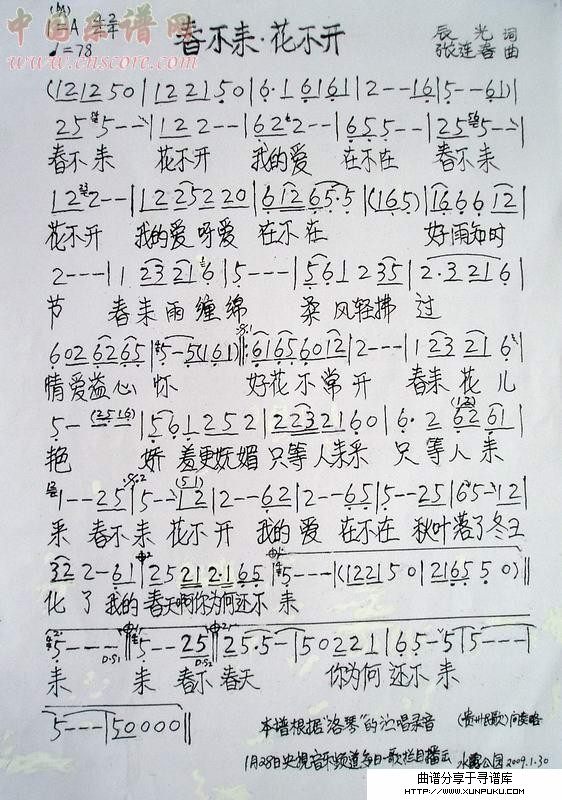 中国乐谱网
www.cnscore.com
1=A 2/4
♩=78
春不来·花不开
辰光 词
张连春 曲
(1 2 1 2 5 0 | 1 2 2 1 5 0 | 6· 1 6 1 6 1 | 2 - - 1 6 | 5 - - 6 1)
2 5 5 - - | 1 2 2 - - | 6 2 2 - - | 6 5 5 - - | 2 5 5 - -
春不来 花不开 我的爱 在不在 春不来
1 2 2 - - | 1 2 2 5 2 2 0 | 6 1 2 6 5· 5 | (1 6 5) | 1 6 6 6 1 2
花不开 我的爱呀爱 在不在 好雨知时
2 - - - | 1 2 3 2 1 6 | 5 - - - | 5 6 1 2 3 5 | 2· 3 2 1 6
节 春来雨缠绵 柔风轻拂过
6 0 2 6 2 6 5 | 5 - 5 (1 6 1) | 6 1 6 5 6 0 1 2 | 2 - - - | 1 2 3 2 1 6
情爱益心怀 好花不常开 春来花儿
5 - - (2 5 1 6) | 5 6 1 2 5 2 | 2 2 3 2 1 6 0 | 6· 2 6 2 6 1
艳 娇羞更妩媚 只等人来采 只等人来
1 - - 2 5 | 5 - - 1 2 | 2 - - 6 2 | 2 - - 6 5 | 5 - - 2 5 | 6 5 - 1 2
采 春不来 花不开 我的爱 在不在 秋叶落了冬又
3 2 2 - 6 1 | 2 5 2 1 2· 1 6 5 | 5 - - - | (1 2 2 1 5 0 | 2 1 6 5 5 0)
化了我的春天啊你为何还不来
5 - - - | 5 - - 2 5 | 2 5· 5 - | 5 0 2 2 1 | 6 5 - 5 | 5 - - -
D.S1 D.S2
来 来 春不春天 你为何还不来
5 - - - | 5 0 0 0 0
本谱根据"洛琴"的演唱录音 (贵州民歌) 间奏略
1月28日央视音乐频道每日一歌栏目播出 水露公园 2009.1.30
曲谱分享于寻谱库
HTTP://WWW.XUNPUKU.COM